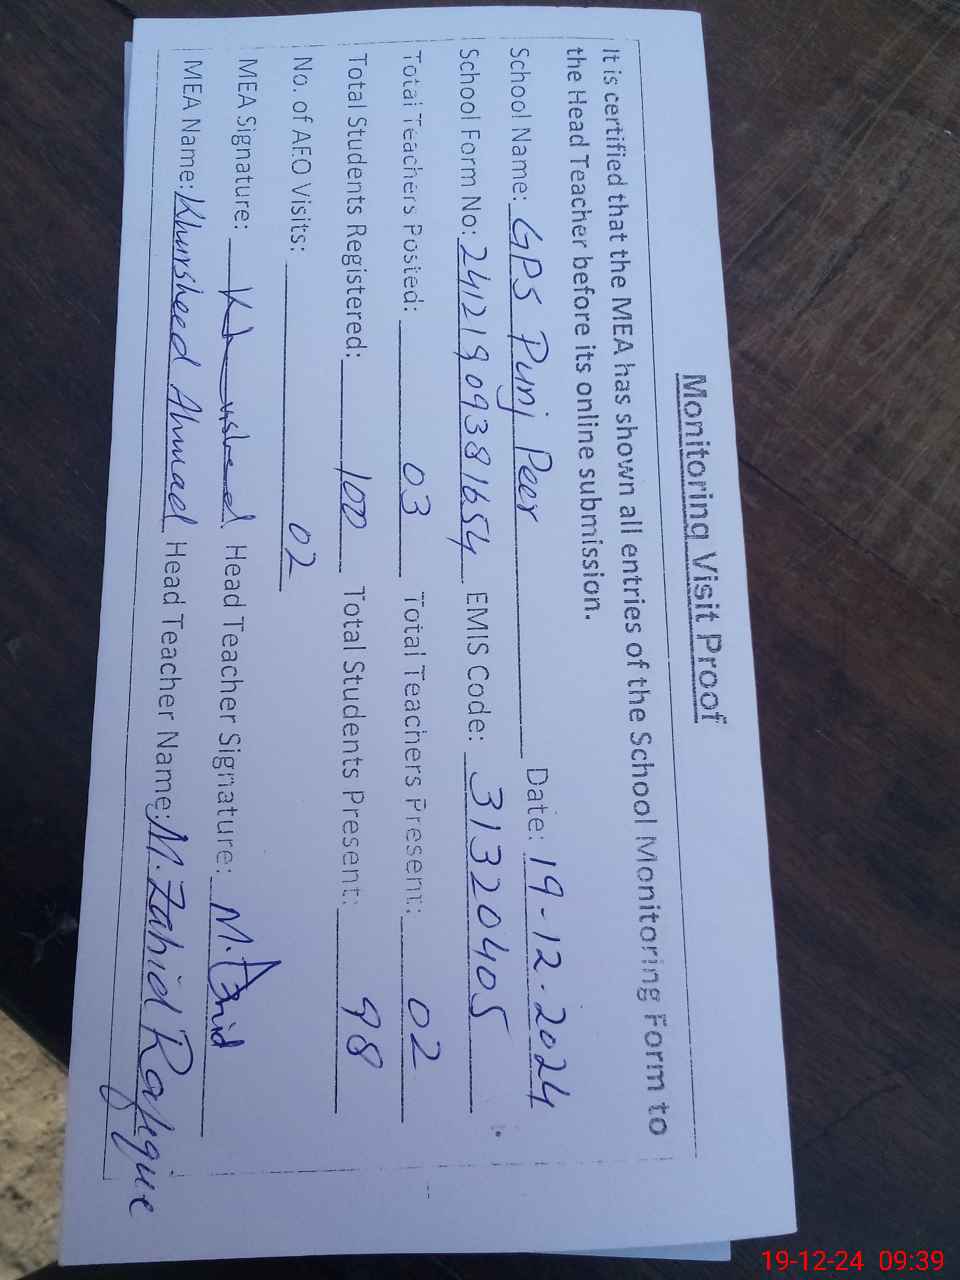 Monitoring Visit Proof
It is certified that the MEA has shown all entries of the School Monitoring Form to
the Head Teacher before its online submission.
School Name: GPS Punj Peer Date: 19-12-2024
School Form No: 24121909381654 EMIS Code: 31320405
Total Teachers Posted: 03 Total Teachers Present: 02
Total Students Registered: 100 Total Students Present: 98
No. of AEO Visits: 02
MEA Signature: Khursheed Head Teacher Signature: M. Zahid
MEA Name: Khursheed Ahmad Head Teacher Name: M. Zahid Rafique
19-12-24 09:39